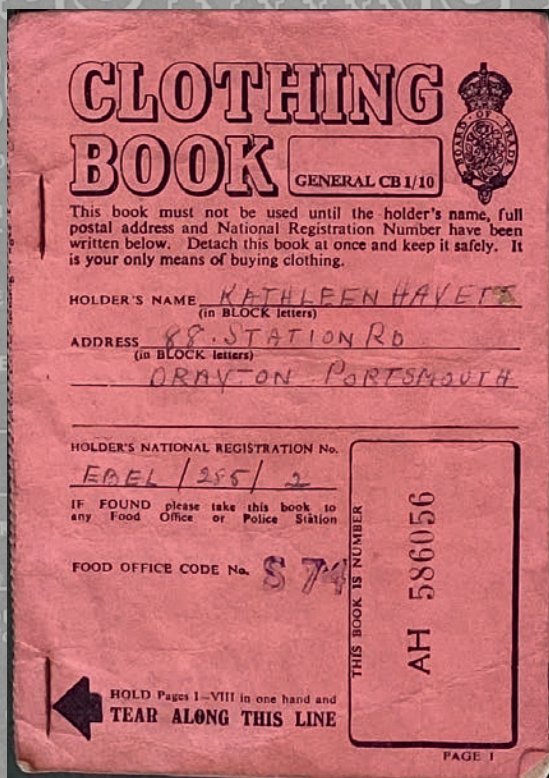 CLOTHING
BOOK
GENERAL CB 1/10
BOARD · OF · TRADE
This book must not be used until the holder's name, full
postal address and National Registration Number have been
written below. Detach this book at once and keep it safely. It
is your only means of buying clothing.
HOLDER'S NAME KATHLEEN
(in BLOCK letters)
ADDRESS 88. STATION RD
(in BLOCK letters)
DRAYTON PORTSMOUTH
HOLDER'S NATIONAL REGISTRATION No.
EBEL / 285 / 2
IF FOUND please take this book to
any Food Office or Police Station
FOOD OFFICE CODE No. S 74
THIS BOOK IS NUMBER
AH 586056
HOLD Pages I–VIII in one hand and
TEAR ALONG THIS LINE
PAGE I